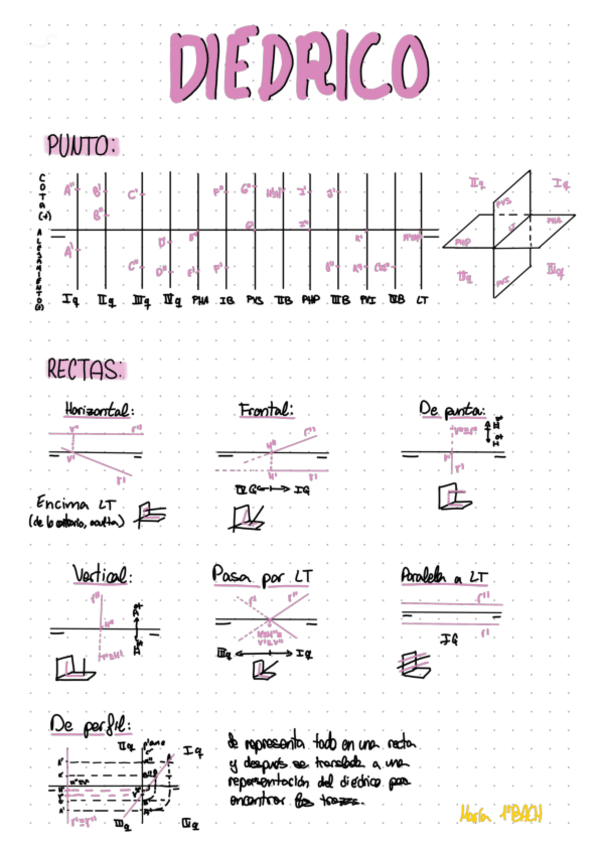 DIÉDRICO
PUNTO:
COTA (+)
ALEJAMIENTO (+)
A'' B' C' F'' G'' I' J'
B''
A' D'
C'' D'' E' F' K''
Iq IIq IIIq IVq PHA IB PVS IIB PHP IIIB PVI IVB LT
IIq Iq
PVS
PHA
LT
PHP
PVI
IIIq IVq
RECTAS:
Horizontal: Frontal: De punta:
V'' r''
V' r'
Encima LT
(de lo contrario, oculta)
r''
H''
H' r'
IVQ IQ
V''≡r''
V'
r'
Vertical: Pasa por LT Paralela a LT
r''
H''
r'≡H'
r' r''
H'≡H''≡
V'≡V''
IIIq Iq
r''
r'
IQ
De perfil:
IIq Iq
r'≡r''
IIIq IVq
Se representa todo en una recta
y después se translada a una
representación del diédrico para
encontrar las trazas.
María 1ºBACH